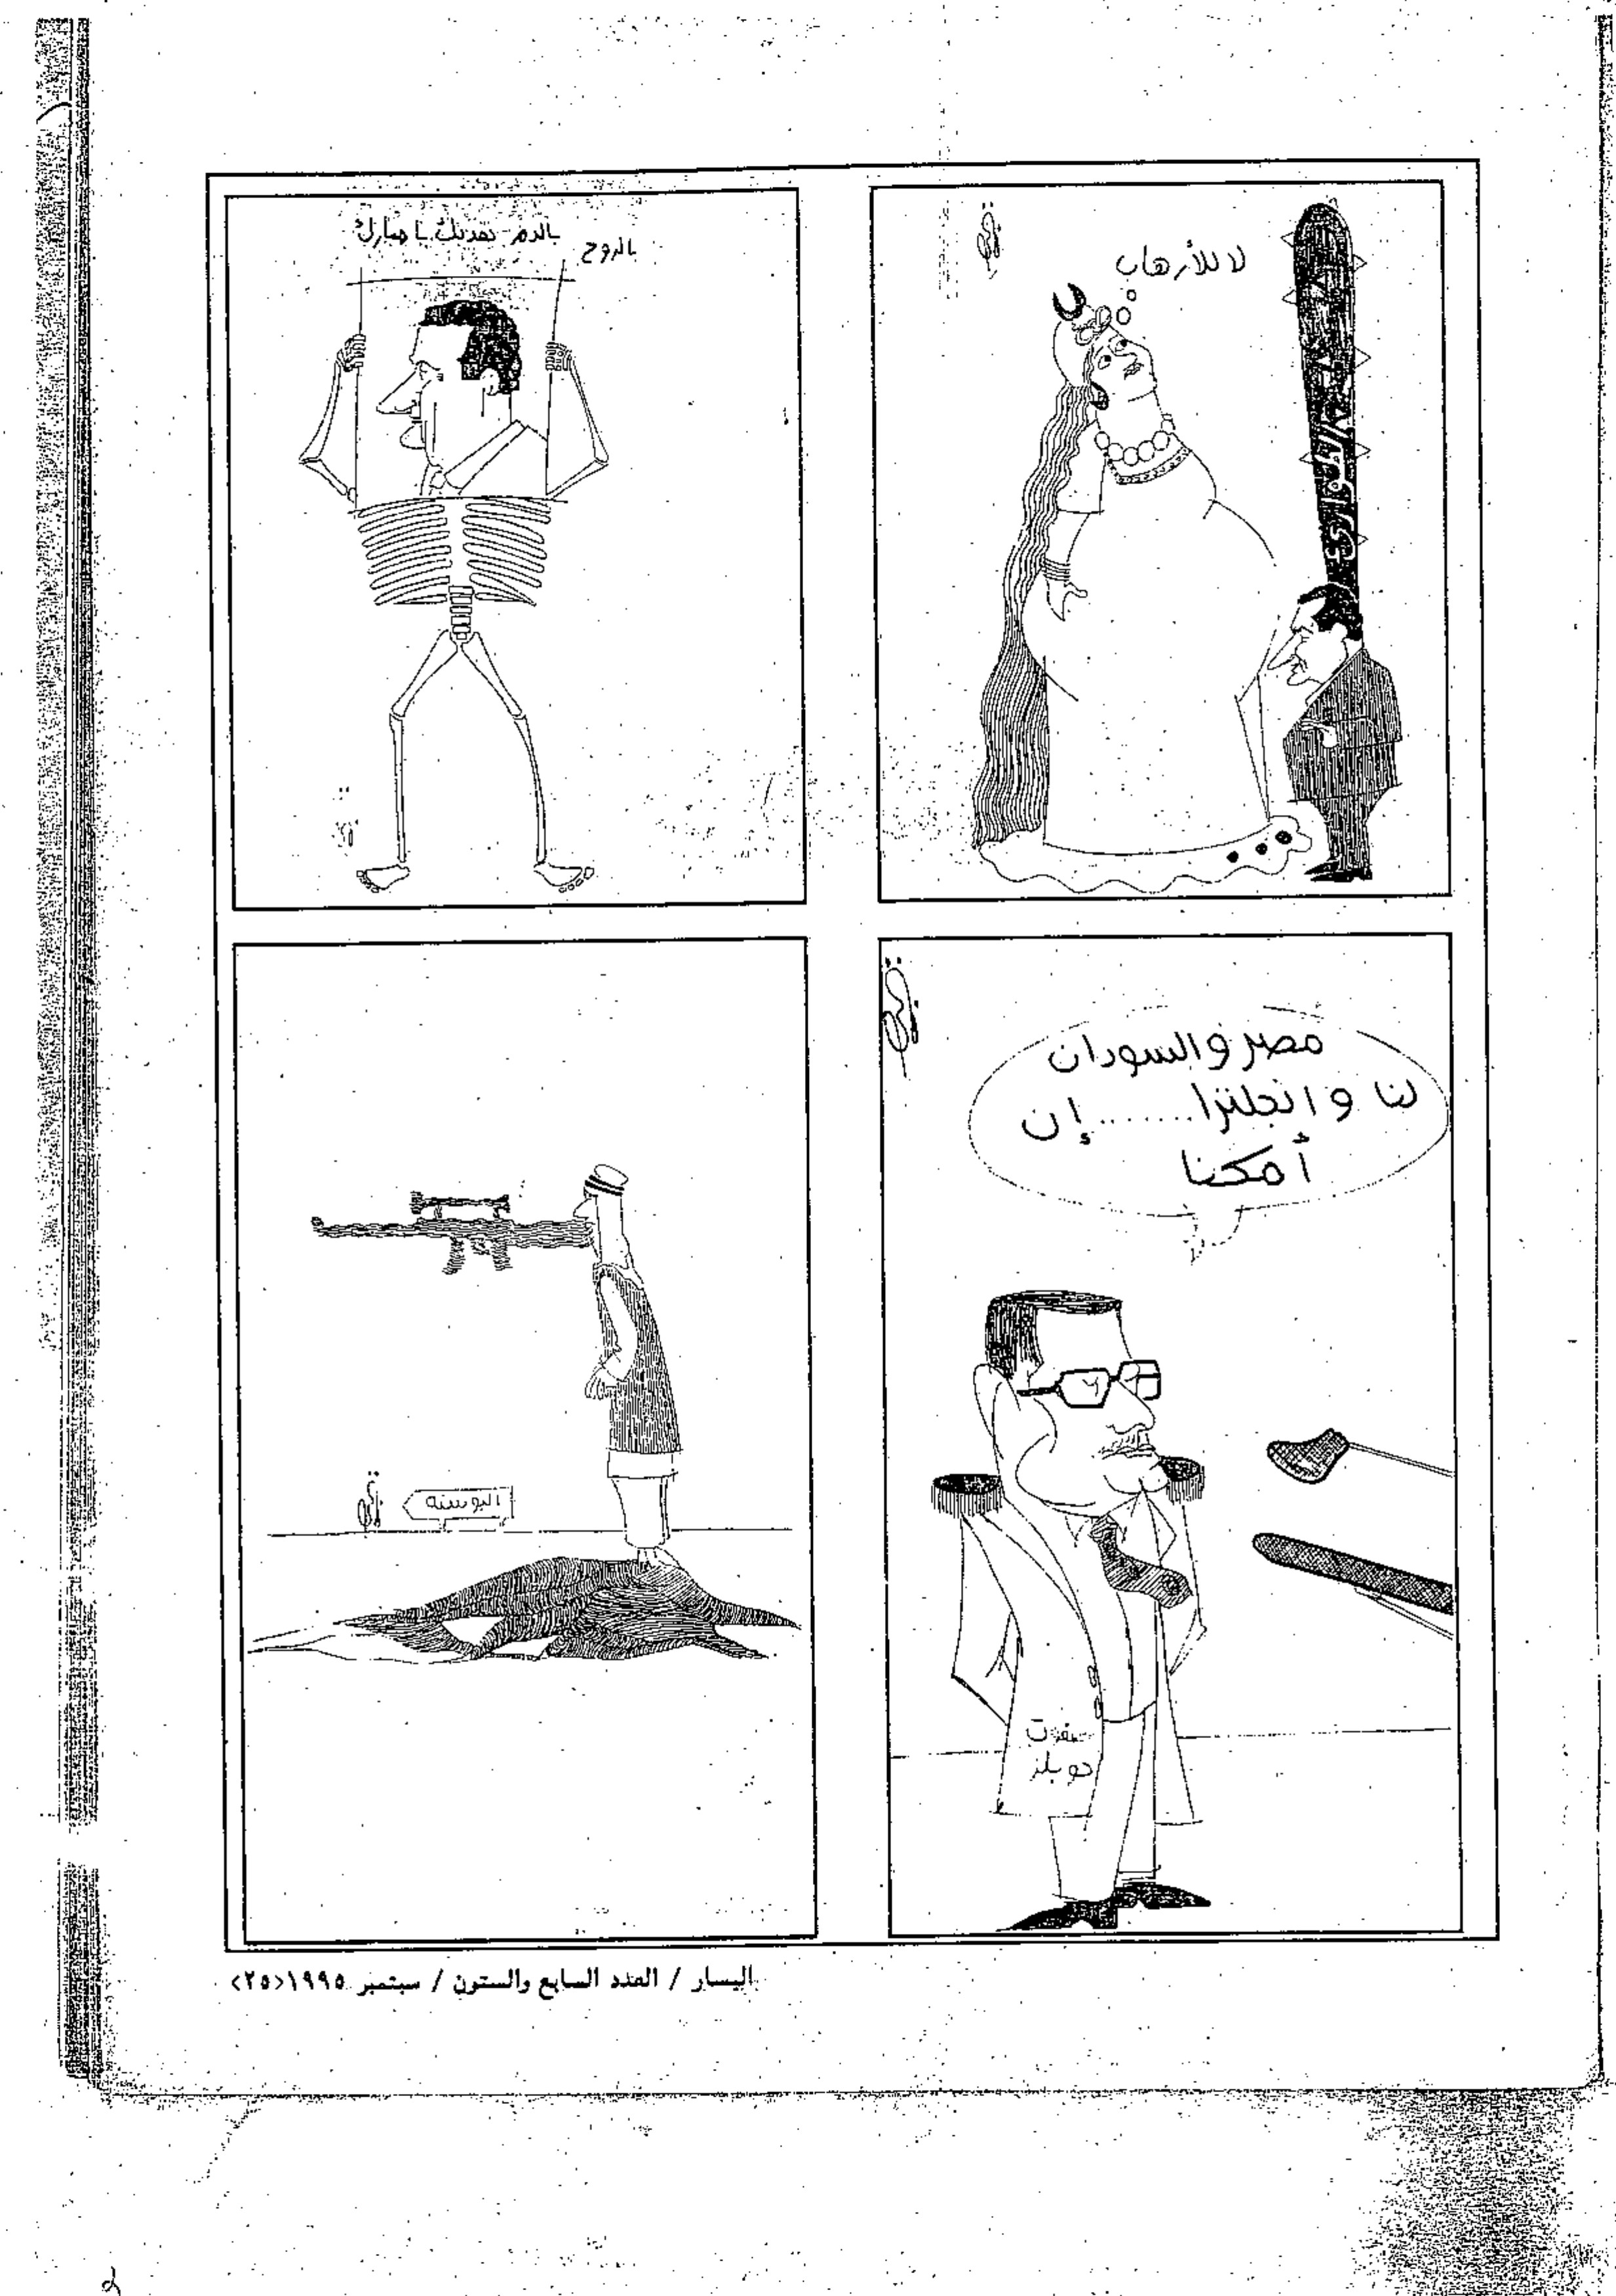 لا للأرهاب
بالروح
بالدم نفديك يا مبارك
مصر والسودان
لنا وانجلترا.......إن
أمكنا
البوسنه
اليسار / العدد السابع والستون / سبتمبر ١٩٩٥<٢٥>